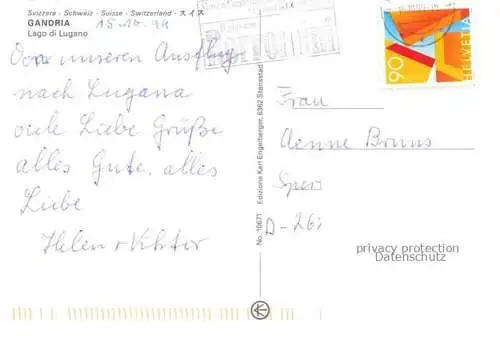 Svizzera - Schweiz - Suisse - Switzerland - スイス
GANDRIA 15.10.99
Lago di Lugano
unseren Ausflug
nach Lugana
viele Liebe Grüße
alles Gute, alles
Liebe
Helen + Viktor
Edizione Karl Engelberger, 6362 Stansstad
No. 10671
90
HELVETIA
Frau
Aenne Bruns
D-26
privacy protection
Datenschutz